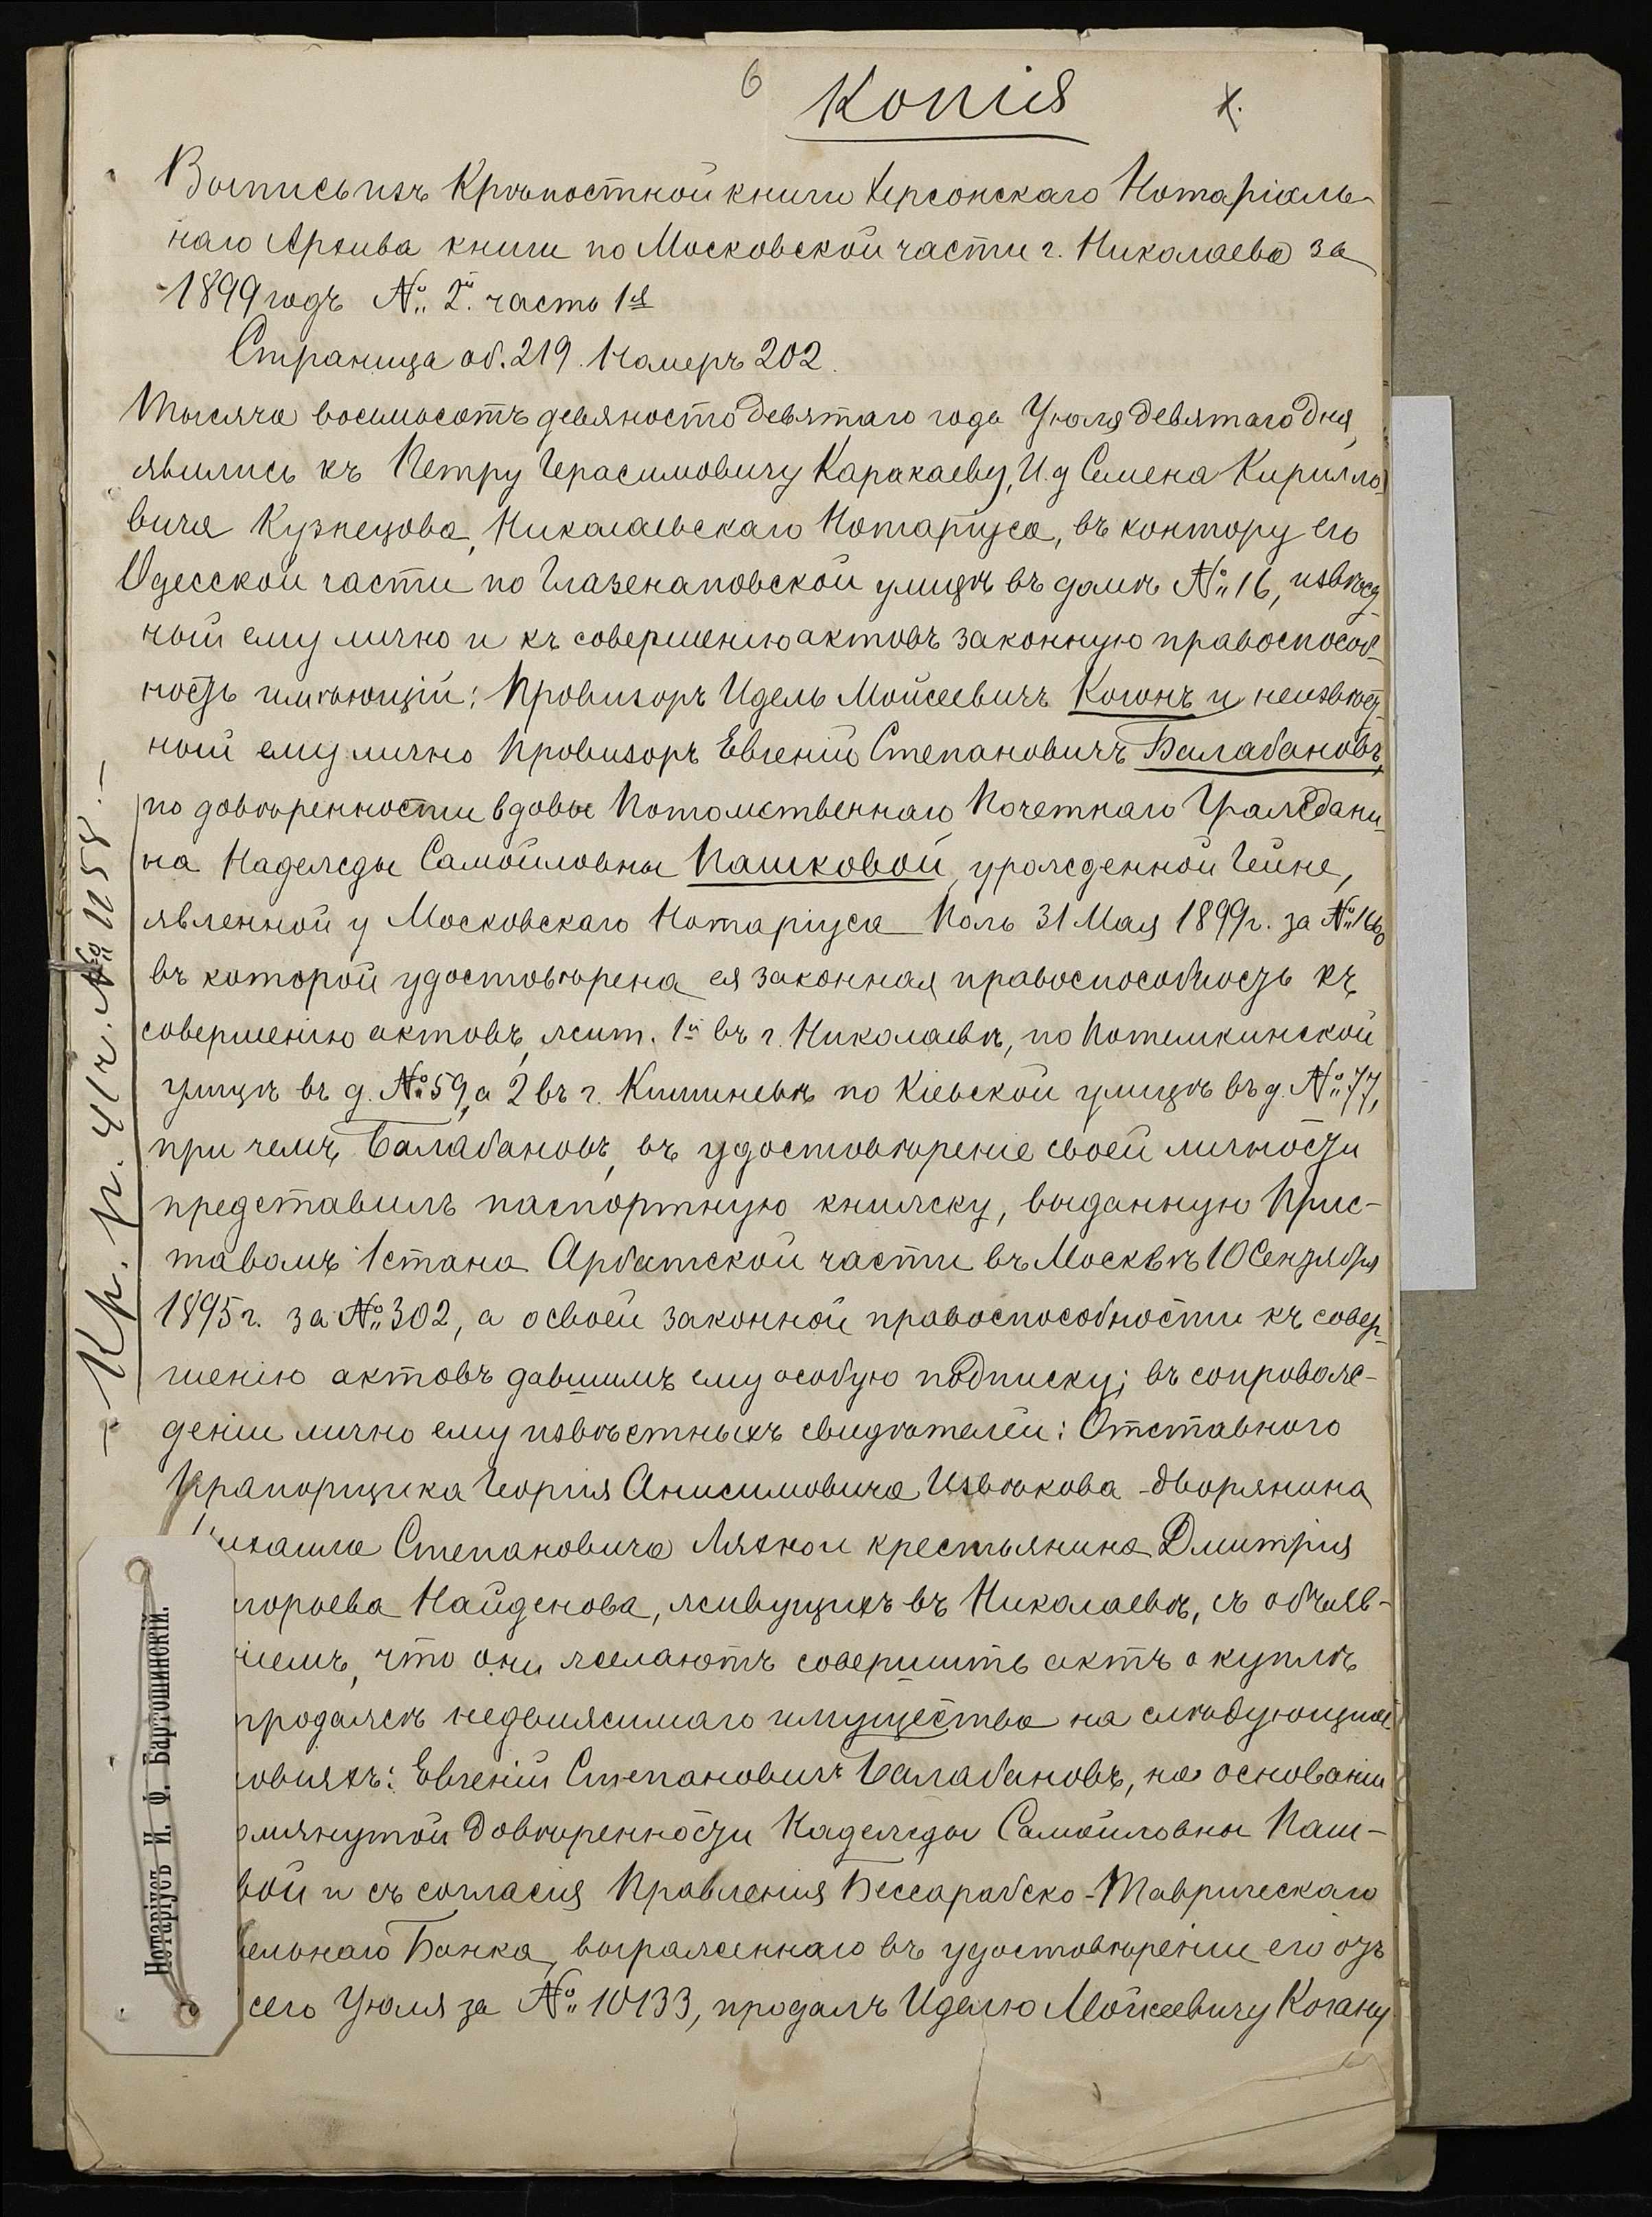 6
Копія
х.
Выпись изъ Крѣпостной книги Херсонскаго Нотаріаль-
наго Архива книги по Московской части г. Николаева за
1899 годъ № 2й. часть 1я
Страница об. 219. Номеръ 202.
Тысяча восемьсотъ девяносто девятаго года Іюля девятаго дня,
явились къ Петру Герасимовичу Каракаеву, И. д Семена Кирилло-
вича Кузнецова, Николаевскаго Нотаріуса, въ контору его
Одесской части по Глазенаповской улицѣ въ домѣ № 16, извѣст-
ный ему лично и къ совершенію актовъ законную правоспособ-
ность имѣющій: Провизоръ Идель Мойсеевичъ Коганъ и неизвѣст-
ный ему лично Провизоръ Евгеній Степановичъ Балабановъ,
по довѣренности вдовы Потомственнаго Почетнаго Граждани-
на Надежды Самойловны Пашковой, урожденной Гейне,
явленной у Московскаго Нотаріуса Поль 31 Мая 1899 г. за № 1660
въ которой удостовѣрена ея законная правоспособность къ
совершенію актовъ, жит. 1й въ г. Николаевѣ, по Потемкинской
улицѣ въ д. № 59, а 2 въ г. Кишиневѣ по Кіевской улицѣ въ д. № 77,
при чемъ Балабановъ, въ удостовѣреніе своей личности
представилъ паспортную книжку, выданную Прис-
тавомъ 1 стана Арбатской части въ Москвѣ 10 Сентября
1895 г. за № 302, а о своей законной правоспособности къ совер-
шенію актовъ давшимъ ему особую подписку; въ сопровож-
деніи лично ему извѣстныхъ свидѣтелей: Отставного
Прапорщика Георгія Анисимовича Извѣкова дворянина
ихаила Степановича Ляхно и крестьянина Дмитрія
горьева Найденова, живущихъ въ Николаевѣ, съ объяв-
ніемъ, что они желаютъ совершить актъ о куплѣ
продажѣ недвижимаго имущества на слѣдующихъ
ловіяхъ: Евгеній Степановичъ Балабановъ, на основаніи
омянутой довѣренности Надежды Самойловны Паш-
вой и съ согласія Правленія Бессарабско-Таврическаго
ельнаго Банка, выраженнаго въ удостовѣреніи его отъ
сего Іюля за № 10133, продалъ Иделю Мойсеевичу Когану
Кр. Нр. 41 г. №
Нотаріусъ И. Ф. Бартошинскій.